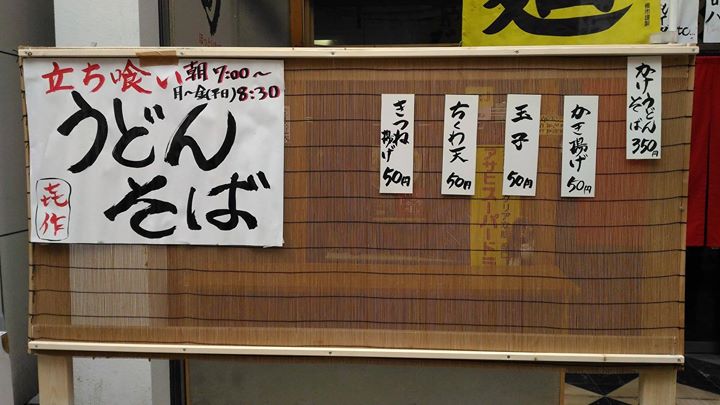 立ち喰い 朝7:00〜
月〜金(平日)8:30
うどん
そば
㐂作
かけうどん
そば
350円
かき揚げ
50円
玉子
50円
ちくわ天
50円
きつね
揚げ
50円
アサヒスーパードラ